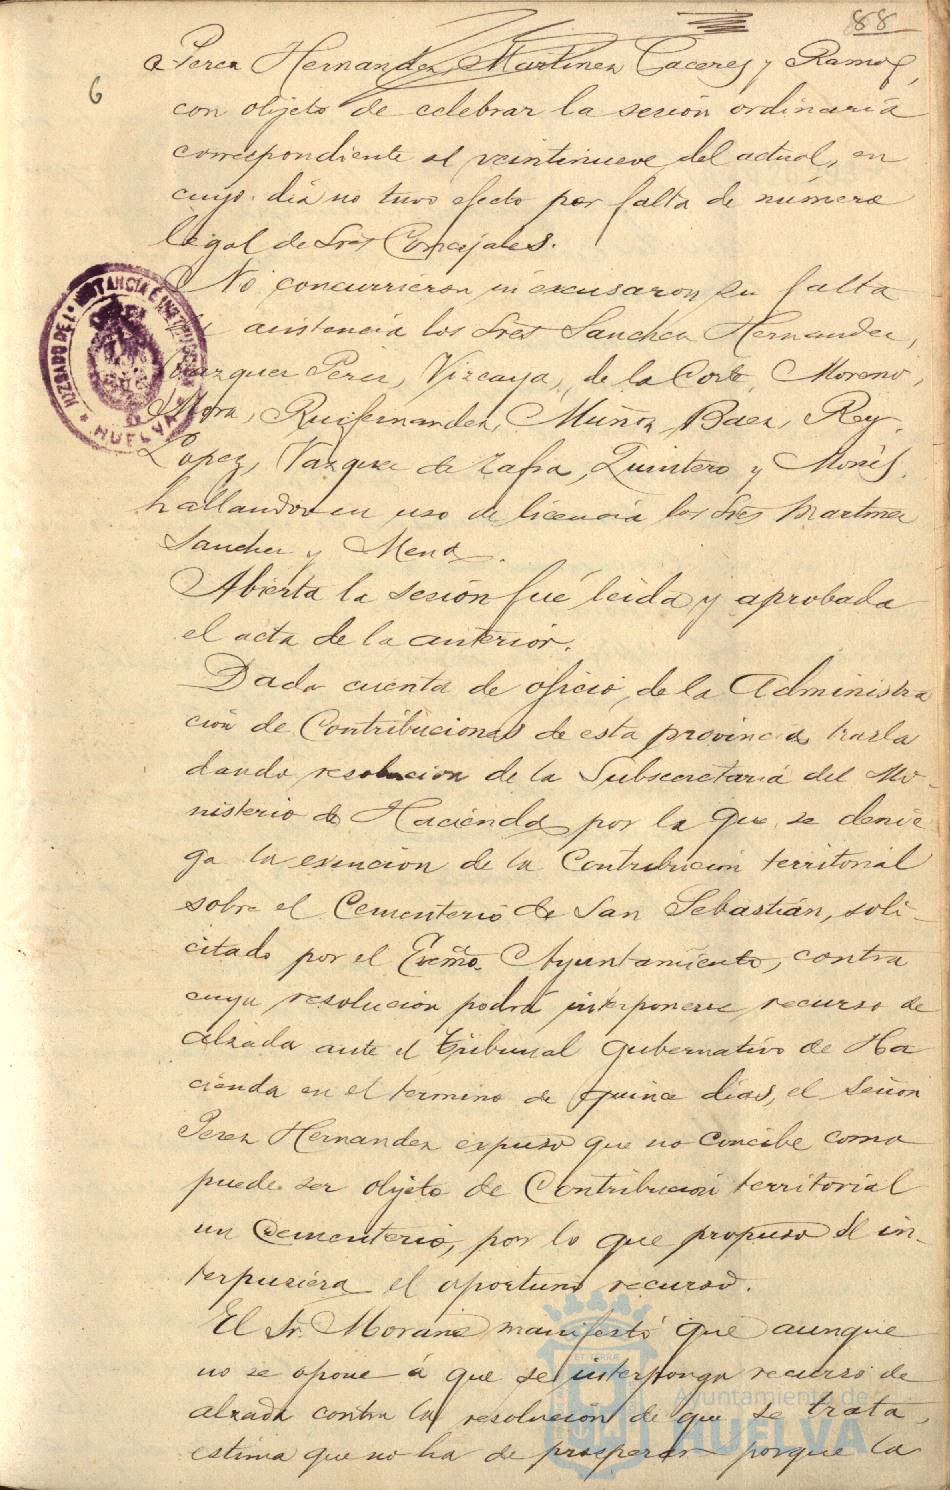 88
6
Perez Hernandez, Martinez Caceres y Ramos,
con objeto de celebrar la sesión ordinaria
correspondiente al veintinueve del actual, en
cuyo dia no tuvo efecto por falta de número
legal de Sres Concejales.
No concurrieron ni excusaron su falta
asistencia los Sres Sanchez Hernandez,
Vazquez Perez, Vizcaya, de la Corte, Moreno,
Mora, Ruifernandez, Muñoz, Báez, Rey,
Lopez, Vazquez de Zafra, Quintero y Monís,
hallandose en uso de licencia los Sres Martinez
Sanchez y Mena.
Abierta la sesión fué leida y aprobada
el acta de la anterior.
Dada cuenta de oficio, de la Administra
ción de Contribuciones de esta provincia, trasla
dando resolucion de la Subsecretaría del Mi-
nisterio de Hacienda por la que se denie
ga la exencion de la Contribución territorial
sobre el Cementerio de San Sebastián, soli-
citado por el Excmo. Ayuntamiento, contra
cuya resolución podrá interponerse recurso de
alzada ante el Tribunal gubernativo de Ha
cienda en el termino de quince dias, el señor
Perez Hernandez expuso que no concibe como
puede ser objeto de Contribucion territorial
un Cementerio, por lo que propuso se in-
terpusiera el oportuno recurso.
El Sr. Morano manifestó que aunque
no se opone á que se interponga recurso de
alzada contra la resolución de que se trata,
estima que no ha de prosperar porque la
JUZGADO DE 1ª INSTANCIA E INSTRUCCION
* HUELVA *
Ayuntamiento de
HUELVA